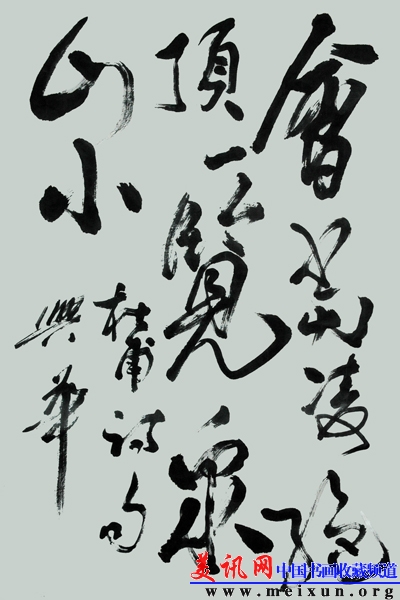 會當凌絕
頂一覽眾
山小
杜甫詩句
興華
美讯网 中国书画收藏频道
www.meixun.org